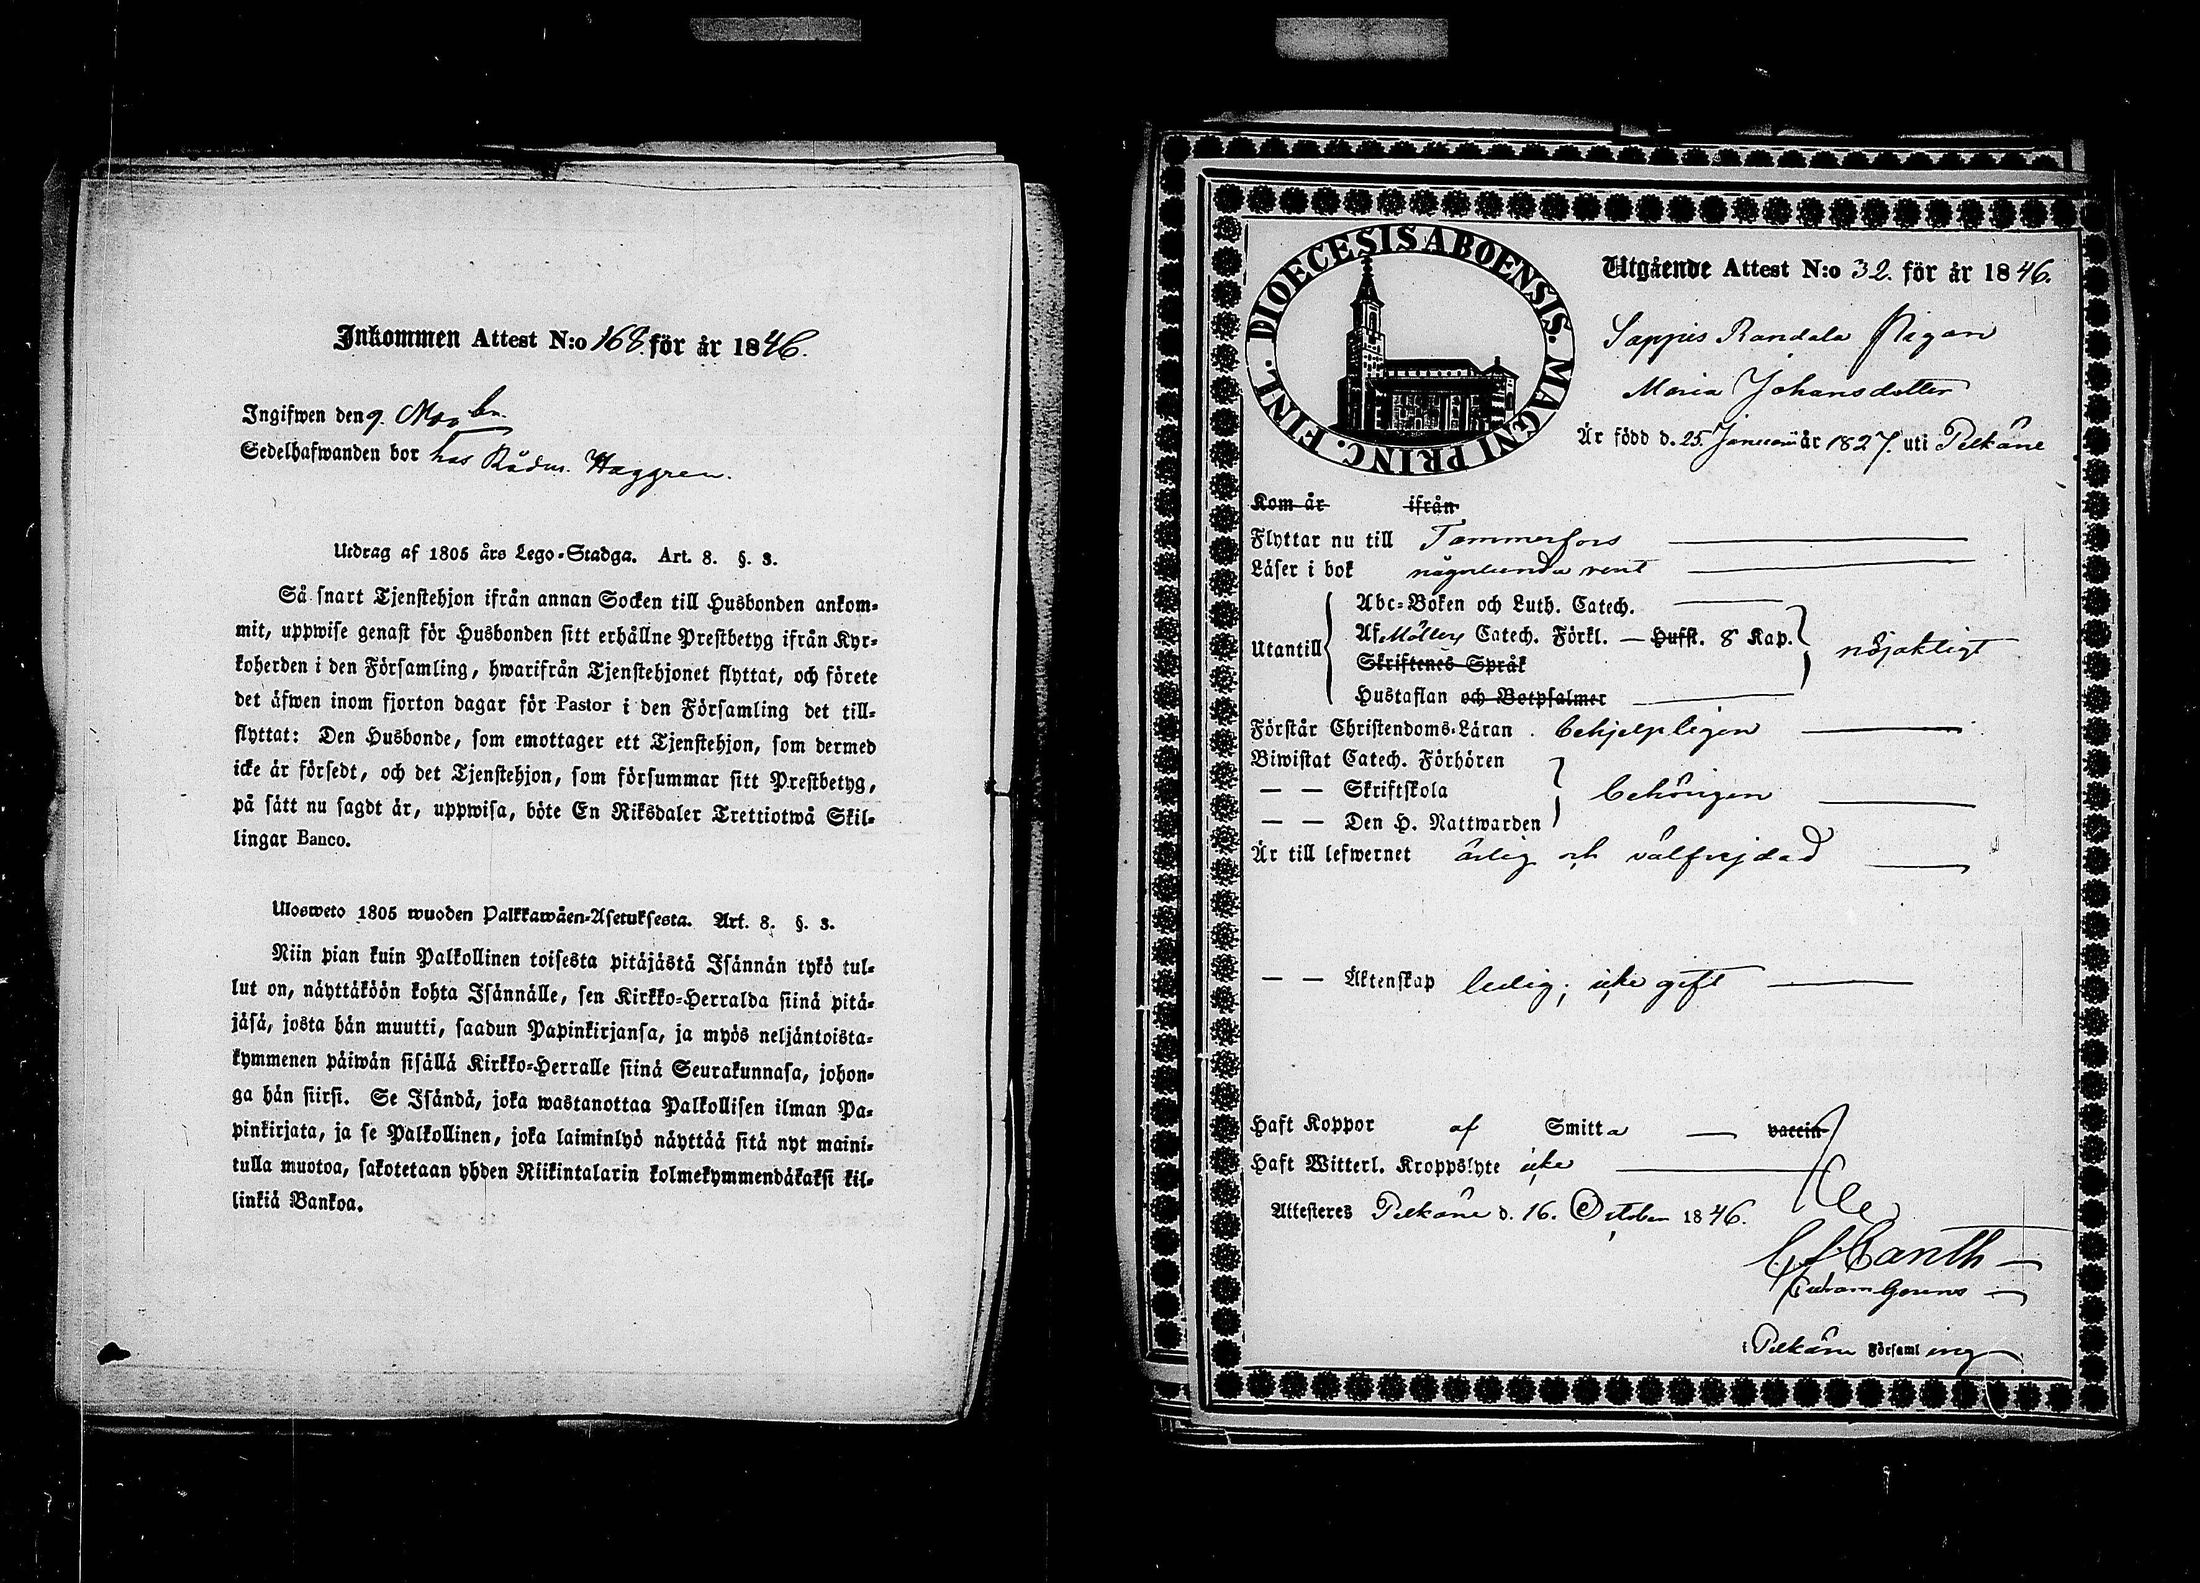 Inkommen Attest N:o 168. för år 1846.
Ingifwen den 9. Novbr.
Sedelhafwanden bor hos Rådm. Haggren.
Utdrag af 1805 års Lego-Stadga. Art. 8. §. 3.
Så snart Tjenstehjon ifrån annan Socken till Husbonden ankom-
mit, uppwise genast för Husbonden sitt erhållne Prestbetyg ifrån Kyr-
koherden i den Församling, hwarifrån Tjenstehjonet flyttat, och förete
det äfwen inom fjorton dagar för Pastor i den Församling det till-
flyttat: Den Husbonde, som emottager ett Tjenstehjon, som dermed
icke är försedt, och det Tjenstehjon, som försummar sitt Prestbetyg,
på sätt nu sagdt är, uppwisa, böte En Riksdaler Trettiotwå Skil-
lingar Banco.
Ulosweto 1805 wuoden Palkkawäen-Asetuksesta. Art. 8. §. 3.
Niin pian kuin Palkollinen toisesta pitäjästä Isännän tykö tul-
lut on, näyttäköön kohta Isännälle, sen Kirkko-Herralda siinä pitä-
jäsä, josta hän muutti, saadun Papinkirjansa, ja myös neljäntoista-
kymmenen päiwän sisällä Kirkko-Herralle siinä Seurakunnasa, johon-
ga hän siirsi. Se Isändä, joka wastanottaa Palkollisen ilman Pa-
pinkirjata, ja se Palkollinen, joka laiminlyö näyttää sitä nyt maini-
tulla muotoa, sakotetaan yhden Riikintalarin kolmekymmendäkaksi kil-
linkiä Bankoa.
DIOECESIS ABOENSIS. MAGNI PRINC. FINL.
Utgående Attest N:o 32. för år 1846.
Sappis Randala Pigan
Maria Johansdotter
Är född d. 25 Januari år 1827. uti Pelkäne
Kom år ifrån
Flyttar nu till Tammerfors
Läser i bok någorlunda rent
Abc-Boken och Luth. Catech.
Utantill Af Möllers Catech. Förkl. — Hufst. 8 Kap. nöjaktigt
Skriftenes Språk
Hustaflan och Botpsalmer
Förstår Christendoms-Läran. behjelpligen
Biwistat Catech. Förhören
— — Skriftskola behörigen
— — Den H. Nattwarden
Är till lefwernet ärlig och välfrejdad
— — Äktenskap ledig; icke gift
Haft Koppor af Smitta — vaccin
Haft Witterl. Kroppslyte icke
Attesteres Pelkäne d. 16. October 1846.
Canth
i Pelkäne Församling